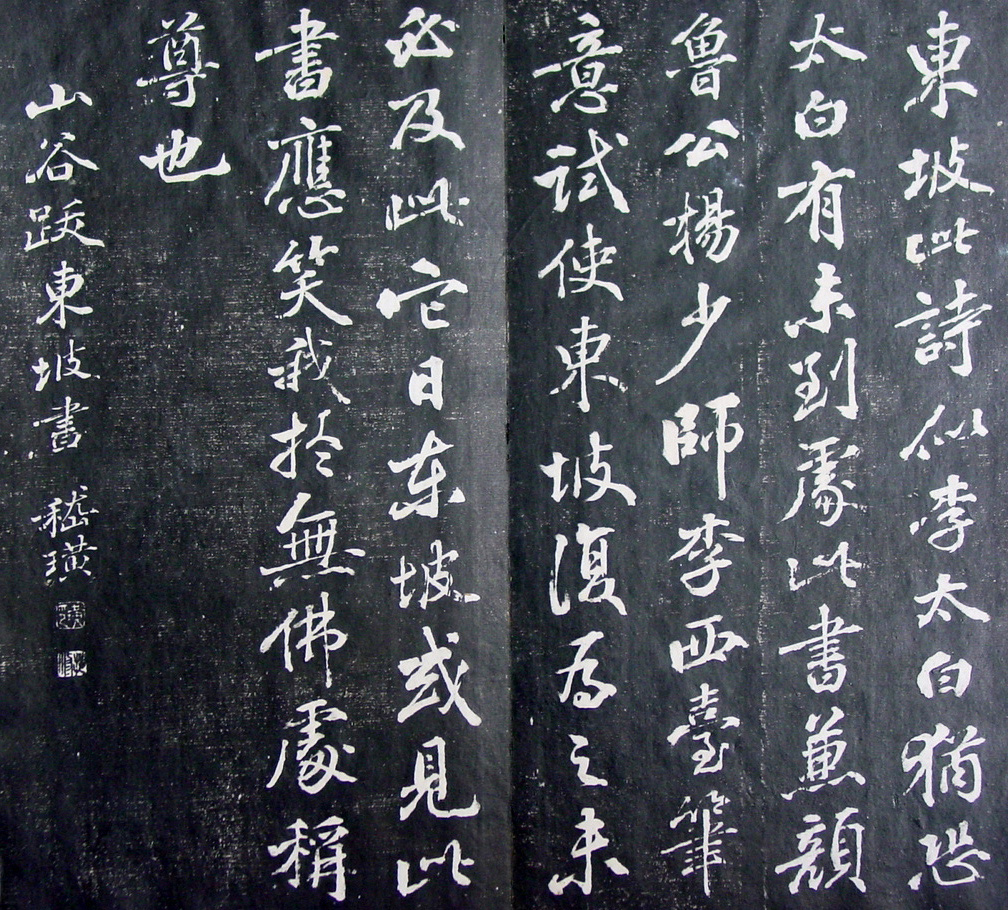 東坡此詩似李太白猶恐
太白有未到處此書兼顔
魯公楊少師李西臺筆
意試使東坡復為之未
必及此它日东坡或見此
書應笑我扵無佛處稱
尊也
山谷跋東坡書 嵇璜